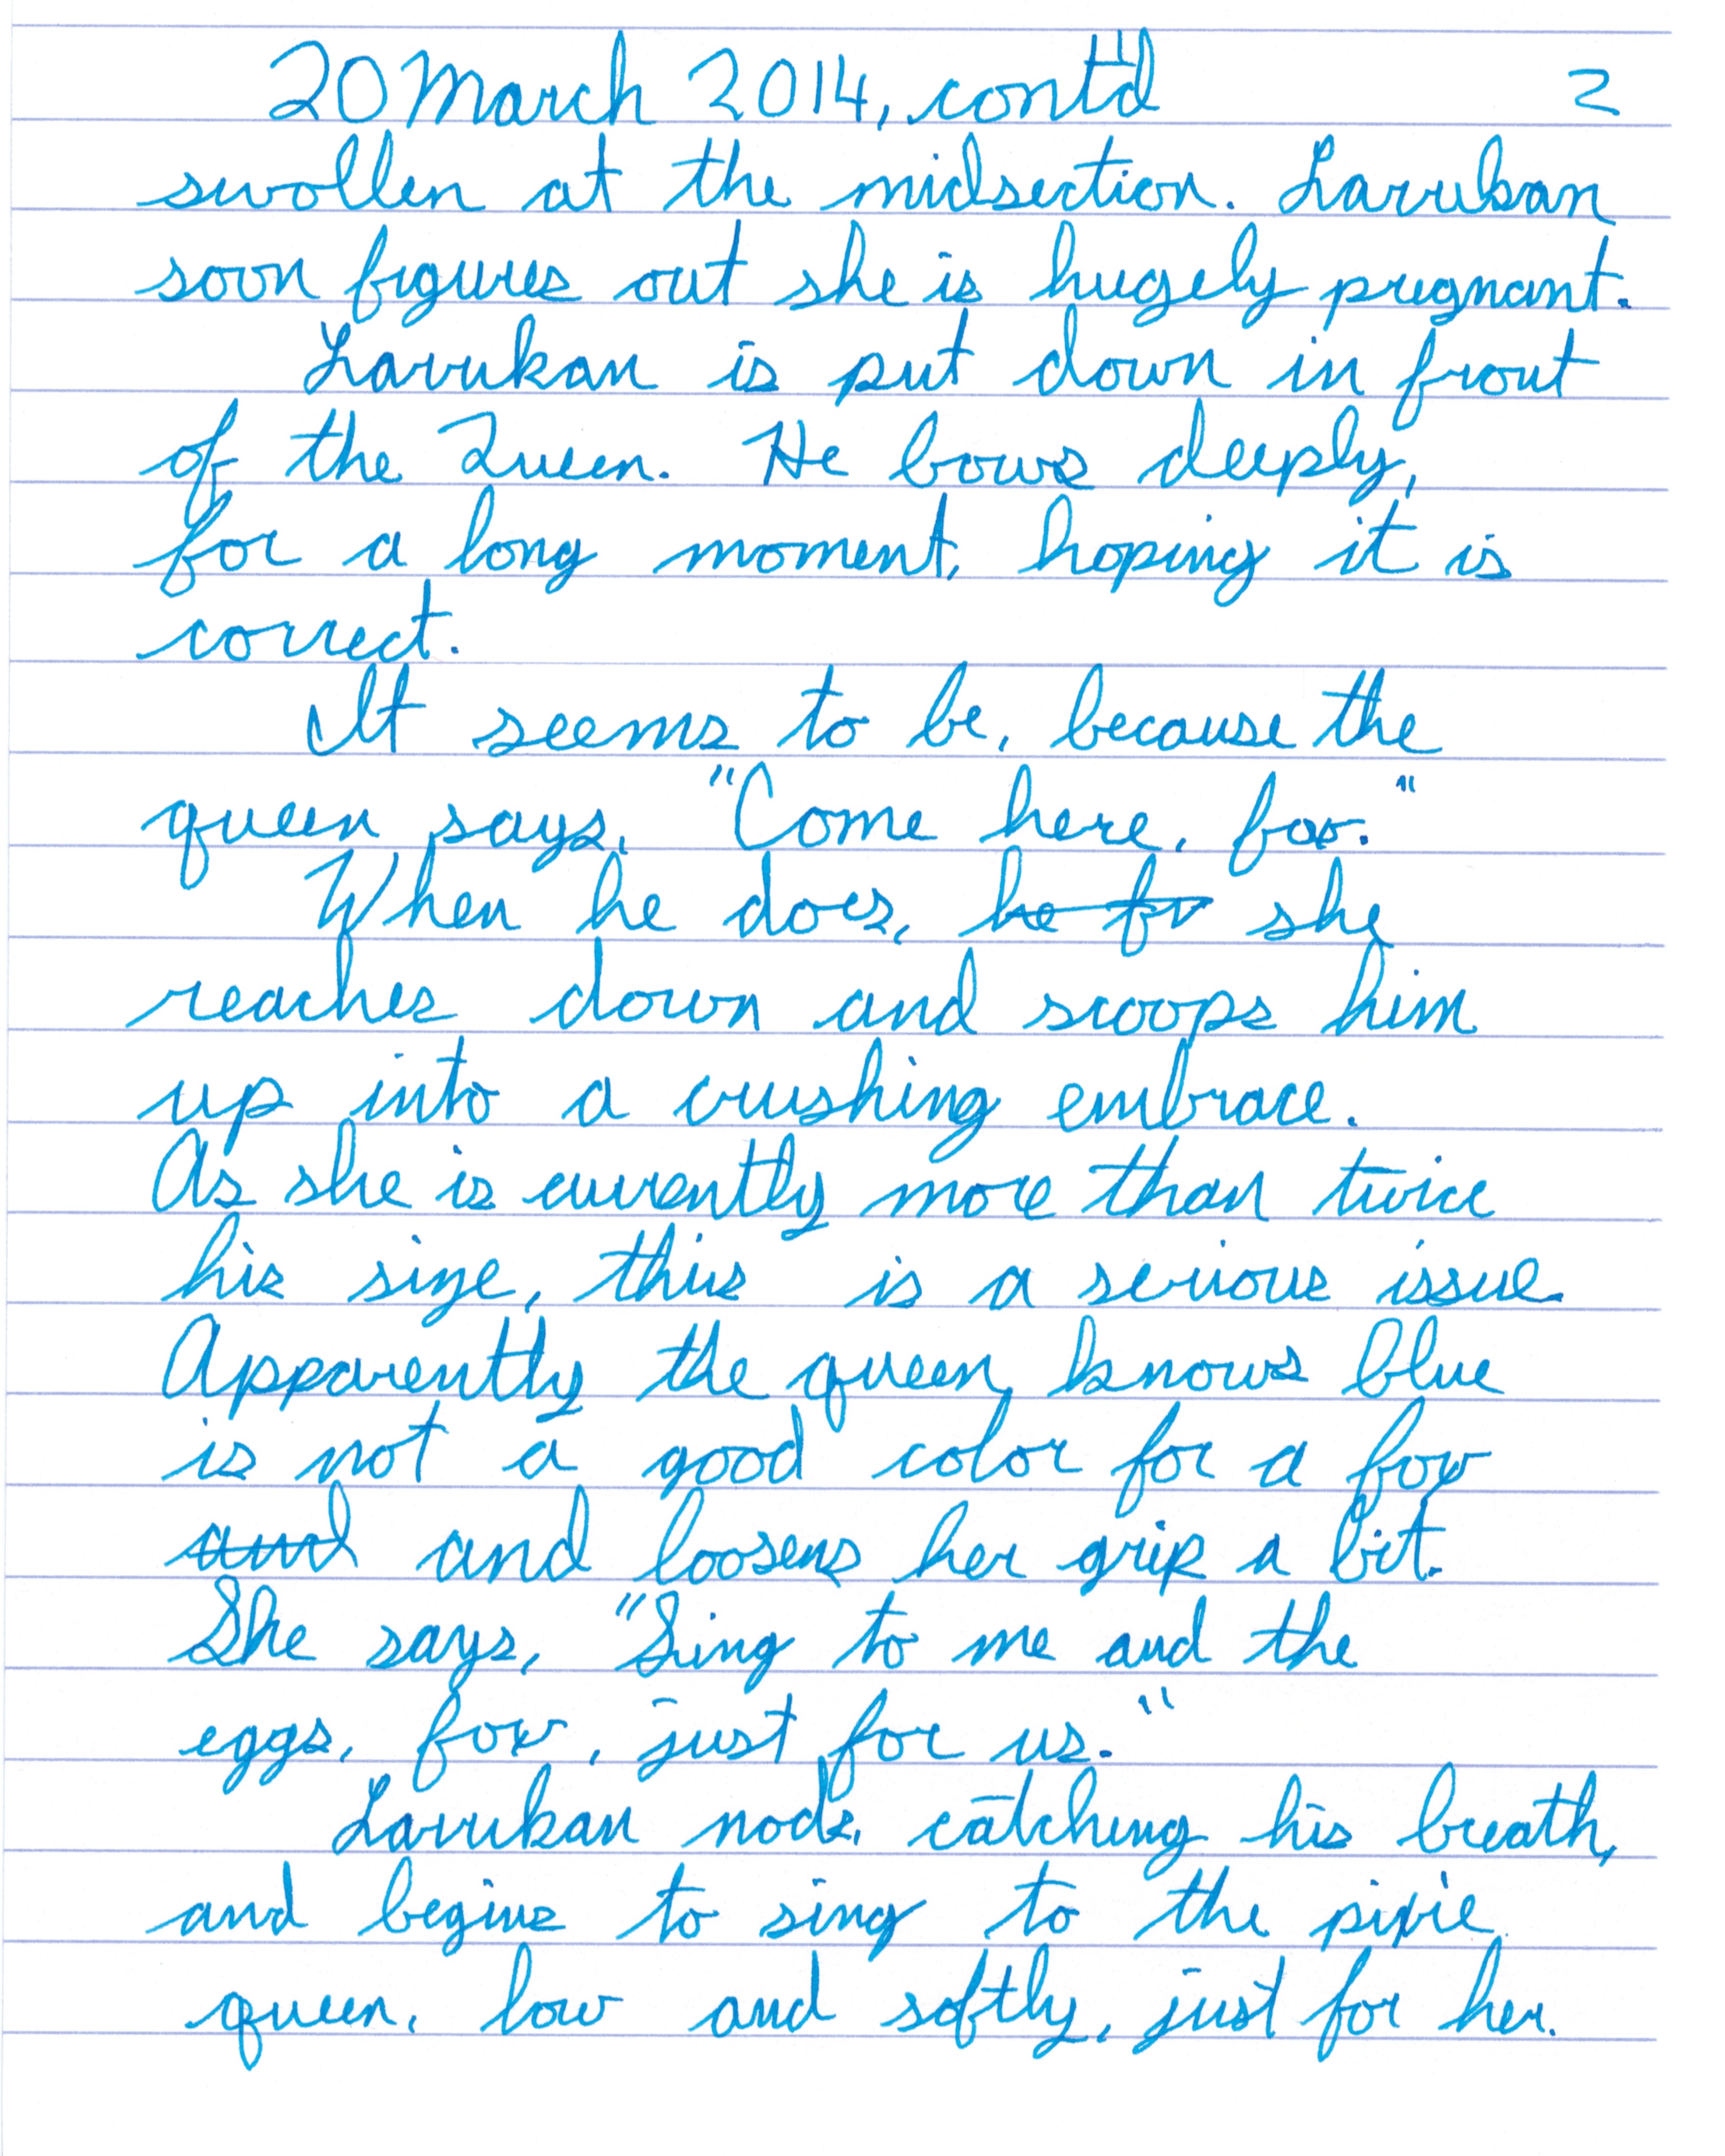 20 March 2014, cont'd 2
swollen at the midsection. Larrukan
soon figures out she is hugely pregnant.
Larrukan is put down in front
of the Queen. He bows deeply,
for a long moment, hoping it is
correct.
It seems to be, because the
queen says, "Come here, fox."
When he does, he fo she
reaches down and scoops him
up into a crushing embrace.
As she is currently more than twice
his size, this is a serious issue.
Apparently the queen knows blue
is not a good color for a fox
and and loosens her grip a bit.
She says, "Sing to me and the
eggs, fox, just for us."
Larrukan nods, catching his breath,
and begins to sing to the pixie
queen, low and softly, just for her.